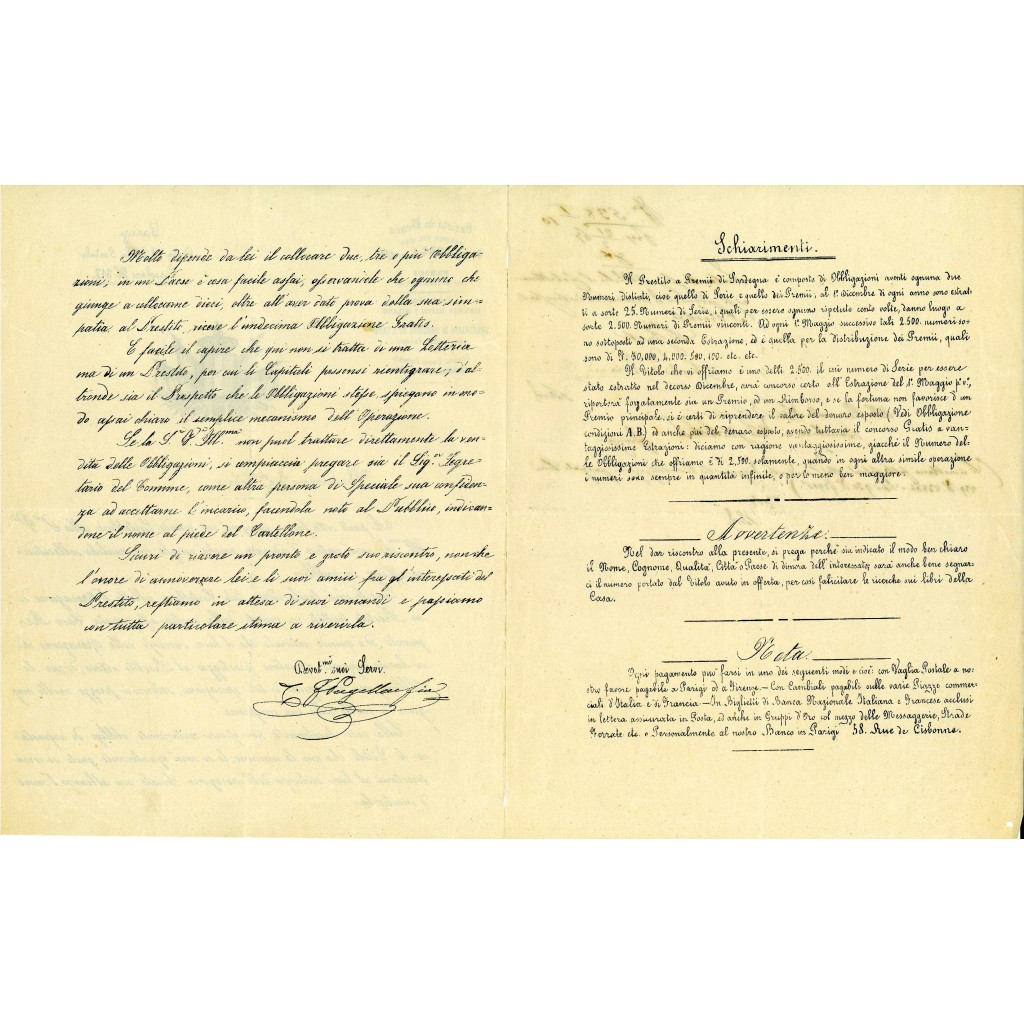 Molto dipende da lei il collocare due, tre o più Obbliga-
zioni; in un Paese è cosa facile assai, osservandole che ognuno che
giunge a collocarne dieci, oltre all'aver dato prova della sua sim-
patia al Prestito, riceve l'undecima Obbligazione Gratis.
E facile il capire che qui non si tratta di una Lotteria
ma di un Prestito, per cui li Capitali possonsi reintegrare; d'al-
tronde sia il Prospetto che le Obbligazioni stesse, spiegano in mo-
do assai chiaro il semplice mecanismo dell'Operazione.
Se la S.ª V.ª Ill.ma non puol trattare direttamente la ven-
dita delle Obbligazioni, si compiaccia pregare sia il Sig.or Segre-
tario del Comune, come altra persona di Speciale sua confiden-
za ad accettarne l'incarico, facendola noto al Pubblico, indican-
done il nome al piede del Cartellone.
Sicuri di riavere un pronto e grato suo riscontro, nonche
l'onore di annoverare lei e li suoi amici fra gl'interessati del
Prestito, restiamo in attesa di suoi comandi e passiamo
con tutta particolare stima a riverirla.
Devot.mi suoi Servi.
Schiarimenti.
Il Prestito a Premii di Sardegna è composto di Obbligazioni aventi ognuna due
Numeri Distinti, cioè quello di Serie e quello dei Premii, al 1º dicembre di ogni anno sono estrat-
ti a sorte 25. Numeri di Serie, i quali per essere ognuno ripetuto cento volte, danno luogo a
sorte 2.500. Numeri di Premii vincenti. Ad ogni 1º Maggio successivo tali 2.500. numeri so-
no sottoposti ad una seconda Estrazione, ed è quella per la distribuzione dei Premii, quali
sono di 50,000, 4,000. 500, 100. etc. etc.
Il Titolo che vi offriamo è uno delli 2.500. il cui numero di Serie per essere
stato estratto nel decorso Dicembre, avrà concorso certo all'Estrazione del 1º Maggio p.º v.º,
riporterà forzatamente sia un Premio, ed un Rimborso, e se la fortuna non favorisce d'un
Premio principale, si è certi di riprendere il valore del denaro esposto (Vedi Obbligazione
condizioni A.B.) ed anche più del denaro esposto, avendo tuttavia il concorso Gratis a van-
taggiosissime Estrazioni: diciamo con ragione vantaggiosissime, giacchè il Numero del-
le Obbligazioni che offriamo è di 2,500. solamente, quando in ogni altra simile operazione
i numeri sono sempre in quantità infinite, o per lo meno ben maggiore.
Avvertenze.
Nel dar riscontro alla presente, si prega perchè sia indicato il modo ben chiaro
il Nome, Cognome, Qualità, Città o Paese di dimora dell'interessato; sarà anche bene segnar-
ci il numero portato dal Titolo avuto in offerta, per così faliciture le ricerche sui libri della
Casa.
Nota.
Ogni pagamento può farsi in uno dei seguenti modi e cioè: con Vaglia Postale a no-
stro favore pagabile a Parigi od a Firenze. – Con Cambiali pagabili sulle varie Piazze commer-
ciali d'Italia e di Francia. – In Biglietti di Banca Nazionale Italiana e Francese acclusi
in lettera assicurata in Posta, ed anche in Gruppi d'Oro col mezzo delle Messaggerie, Strade
Ferrate etc. o Personalmente al nostro Banco in Parigi 58. Rue de Lisbonne.